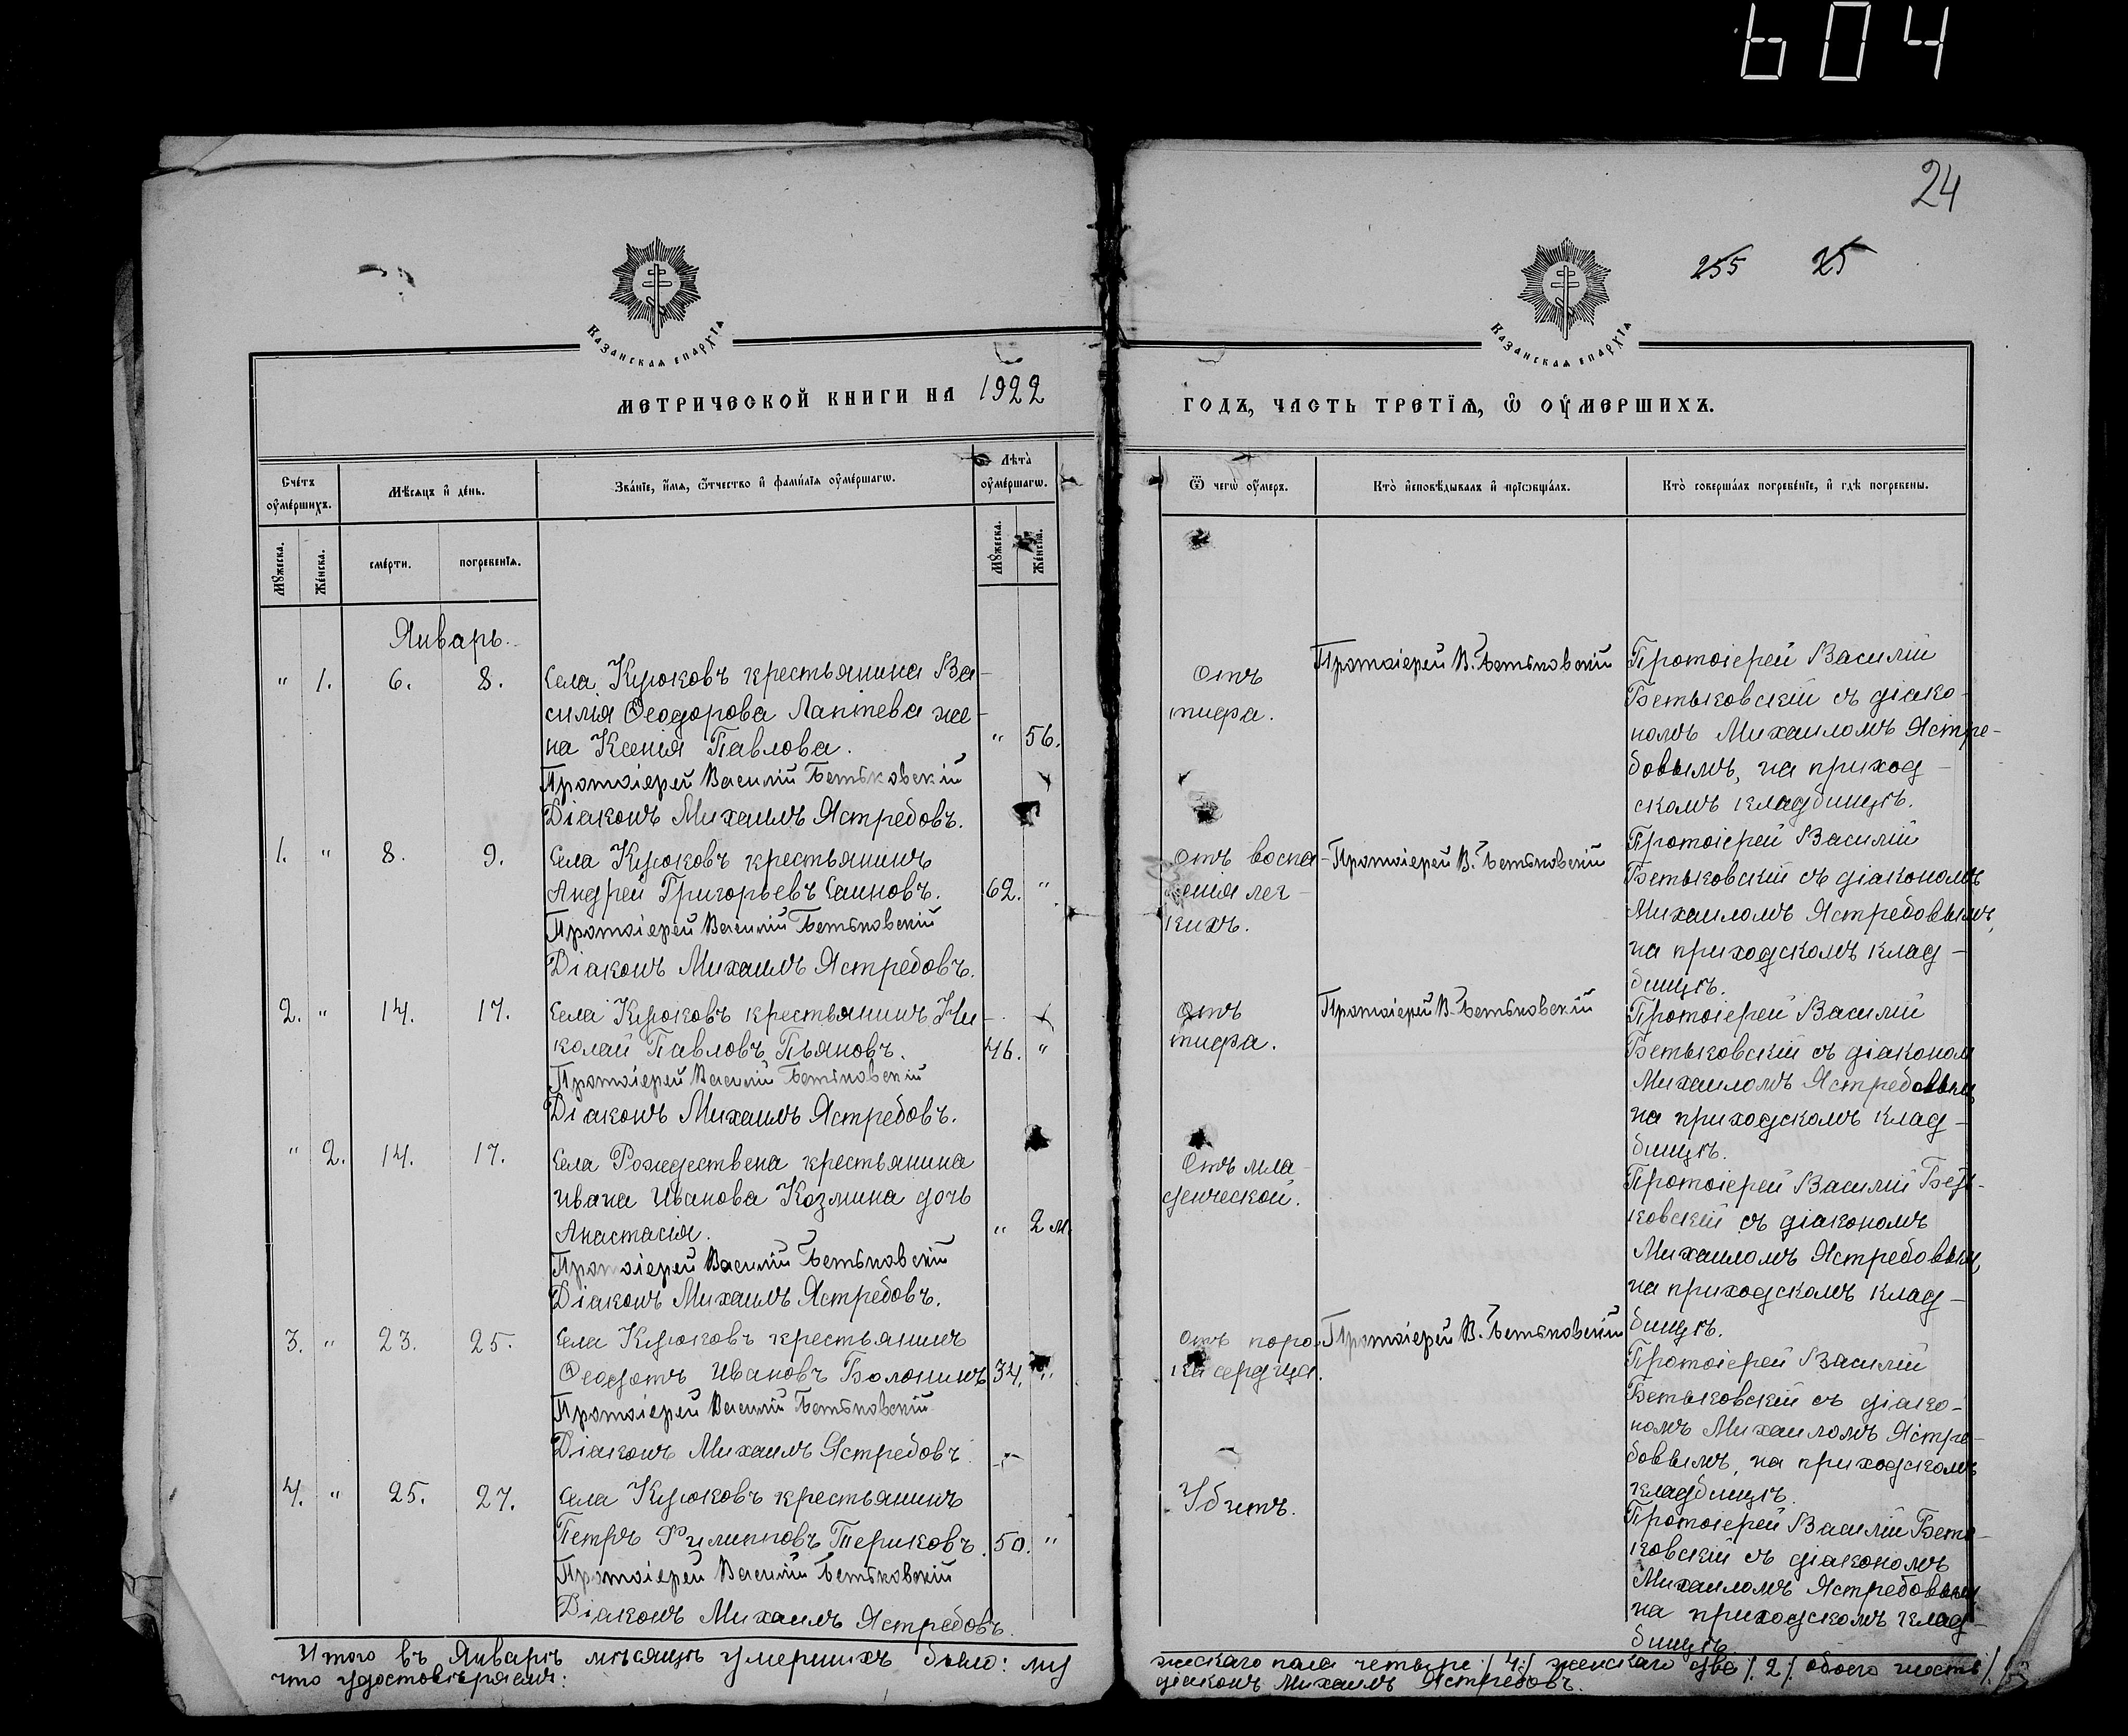 604
24
255 25
КАЗАНСКАѦ ЕПАРХІѦ
КАЗАНСКАѦ ЕПАРХІѦ
МЕТРИЧЕСКОЙ КНИГИ НА 1922
ГОДЪ, ЧАСТЬ ТРЕТІѦ, Ѽ ОУМЕРШИХЪ.
Сче́тъ оумершихъ.
Мѣ́сѧцъ и де́нь.
Зва́нїе, и́мѧ, ѻ́тчество и фами́лїѧ оуме́ршагѡ.
Лѣта̀ оуме́ршагѡ.
Ѿ чегѡ̀ оу́меръ.
Кто̀ и҆сповѣ́дывалъ и҆ прїѡбща́лъ.
Кто̀ соверша́лъ погребе́нїе, и҆ гдѣ̀ погребены.
Мꙋжеска.
Женска.
сме́рти.
погребенїѧ.
Мꙋжеска.
Же́нска.
Январь.
" 1. 6. 8. Села Кирюковъ крестьянина Ва-
силія Ѳеодорова Лаптева же-
на Ксенія Павлова. " 56.
Протоіерей Василій Бетьковскій
Діаконъ Михаилъ Ястребовъ.
Отъ
тифа.
Протоіерей В. Бетьковскій
Протоіерей Василій
Бетьковскій съ діако-
номъ Михаиломъ Ястре-
бовымъ, на приход-
скомъ кладбищѣ.
1. " 8. 9. Села Кирюковъ крестьянинъ
Андрей Григорьевъ Саиновъ. 62. "
Протоіерей Василій Бетьковскій
Діаконъ Михаилъ Ястребовъ.
Отъ воспа-
ленія лег-
кихъ.
Протоіерей В. Бетьковскій
Протоіерей Василій
Бетьковскій съ діакономъ
Михаиломъ Ястребовымъ,
на приходскомъ клад-
бищѣ.
2. " 14. 17. Села Кирюковъ крестьянинъ Ни-
колай Павловъ Пьяновъ. 46. "
Протоіерей Василій Бетьковскій
Діаконъ Михаилъ Ястребовъ.
Отъ
тифа.
Протоіерей В. Бетьковскій
Протоіерей Василій
Бетьковскій съ діаконом
Михаиломъ Ястребовым,
на приходскомъ клад-
бищѣ.
" 2. 14. 17. Села Рождествена крестьянина
Ивана Иванова Козмина дочь
Анастасія. " 2 м.
Протоіерей Василій Бетьковскій
Діаконъ Михаилъ Ястребовъ.
Отъ мла-
денческой.
Протоіерей Василій Беть-
ковскій съ діакономъ
Михаиломъ Ястребовым,
на приходскомъ клад-
бищѣ.
3. " 23. 25. Села Кирюковъ крестьянинъ
Ѳеодотъ Ивановъ Болонинъ 34. "
Протоіерей Василій Бетьковскій
Діаконъ Михаилъ Ястребовъ.
Отъ поро-
ка сердца.
Протоіерей В. Бетьковскій
Протоіерей Василій
Бетьковскій съ діако-
номъ Михаиломъ Ястре-
бовымъ, на приходскомъ
кладбищѣ.
4. " 25. 27. Села Кирюковъ крестьянинъ
Петръ Филипповъ Териковъ. 50. "
Протоіерей Василій Бетьковскій
Діаконъ Михаилъ Ястребовъ.
Убитъ.
Протоіерей Василій Беть-
ковскій съ діакономъ
Михаиломъ Ястребовым
на приходскомъ клад-
бищѣ
Итого въ Январѣ мѣсяцѣ умершихъ было: му
жескаго пола четыре /4/ женскаго два /2/ обоего шесть
что удостовѣряемъ:
діаконъ Михаилъ Ястребовъ.